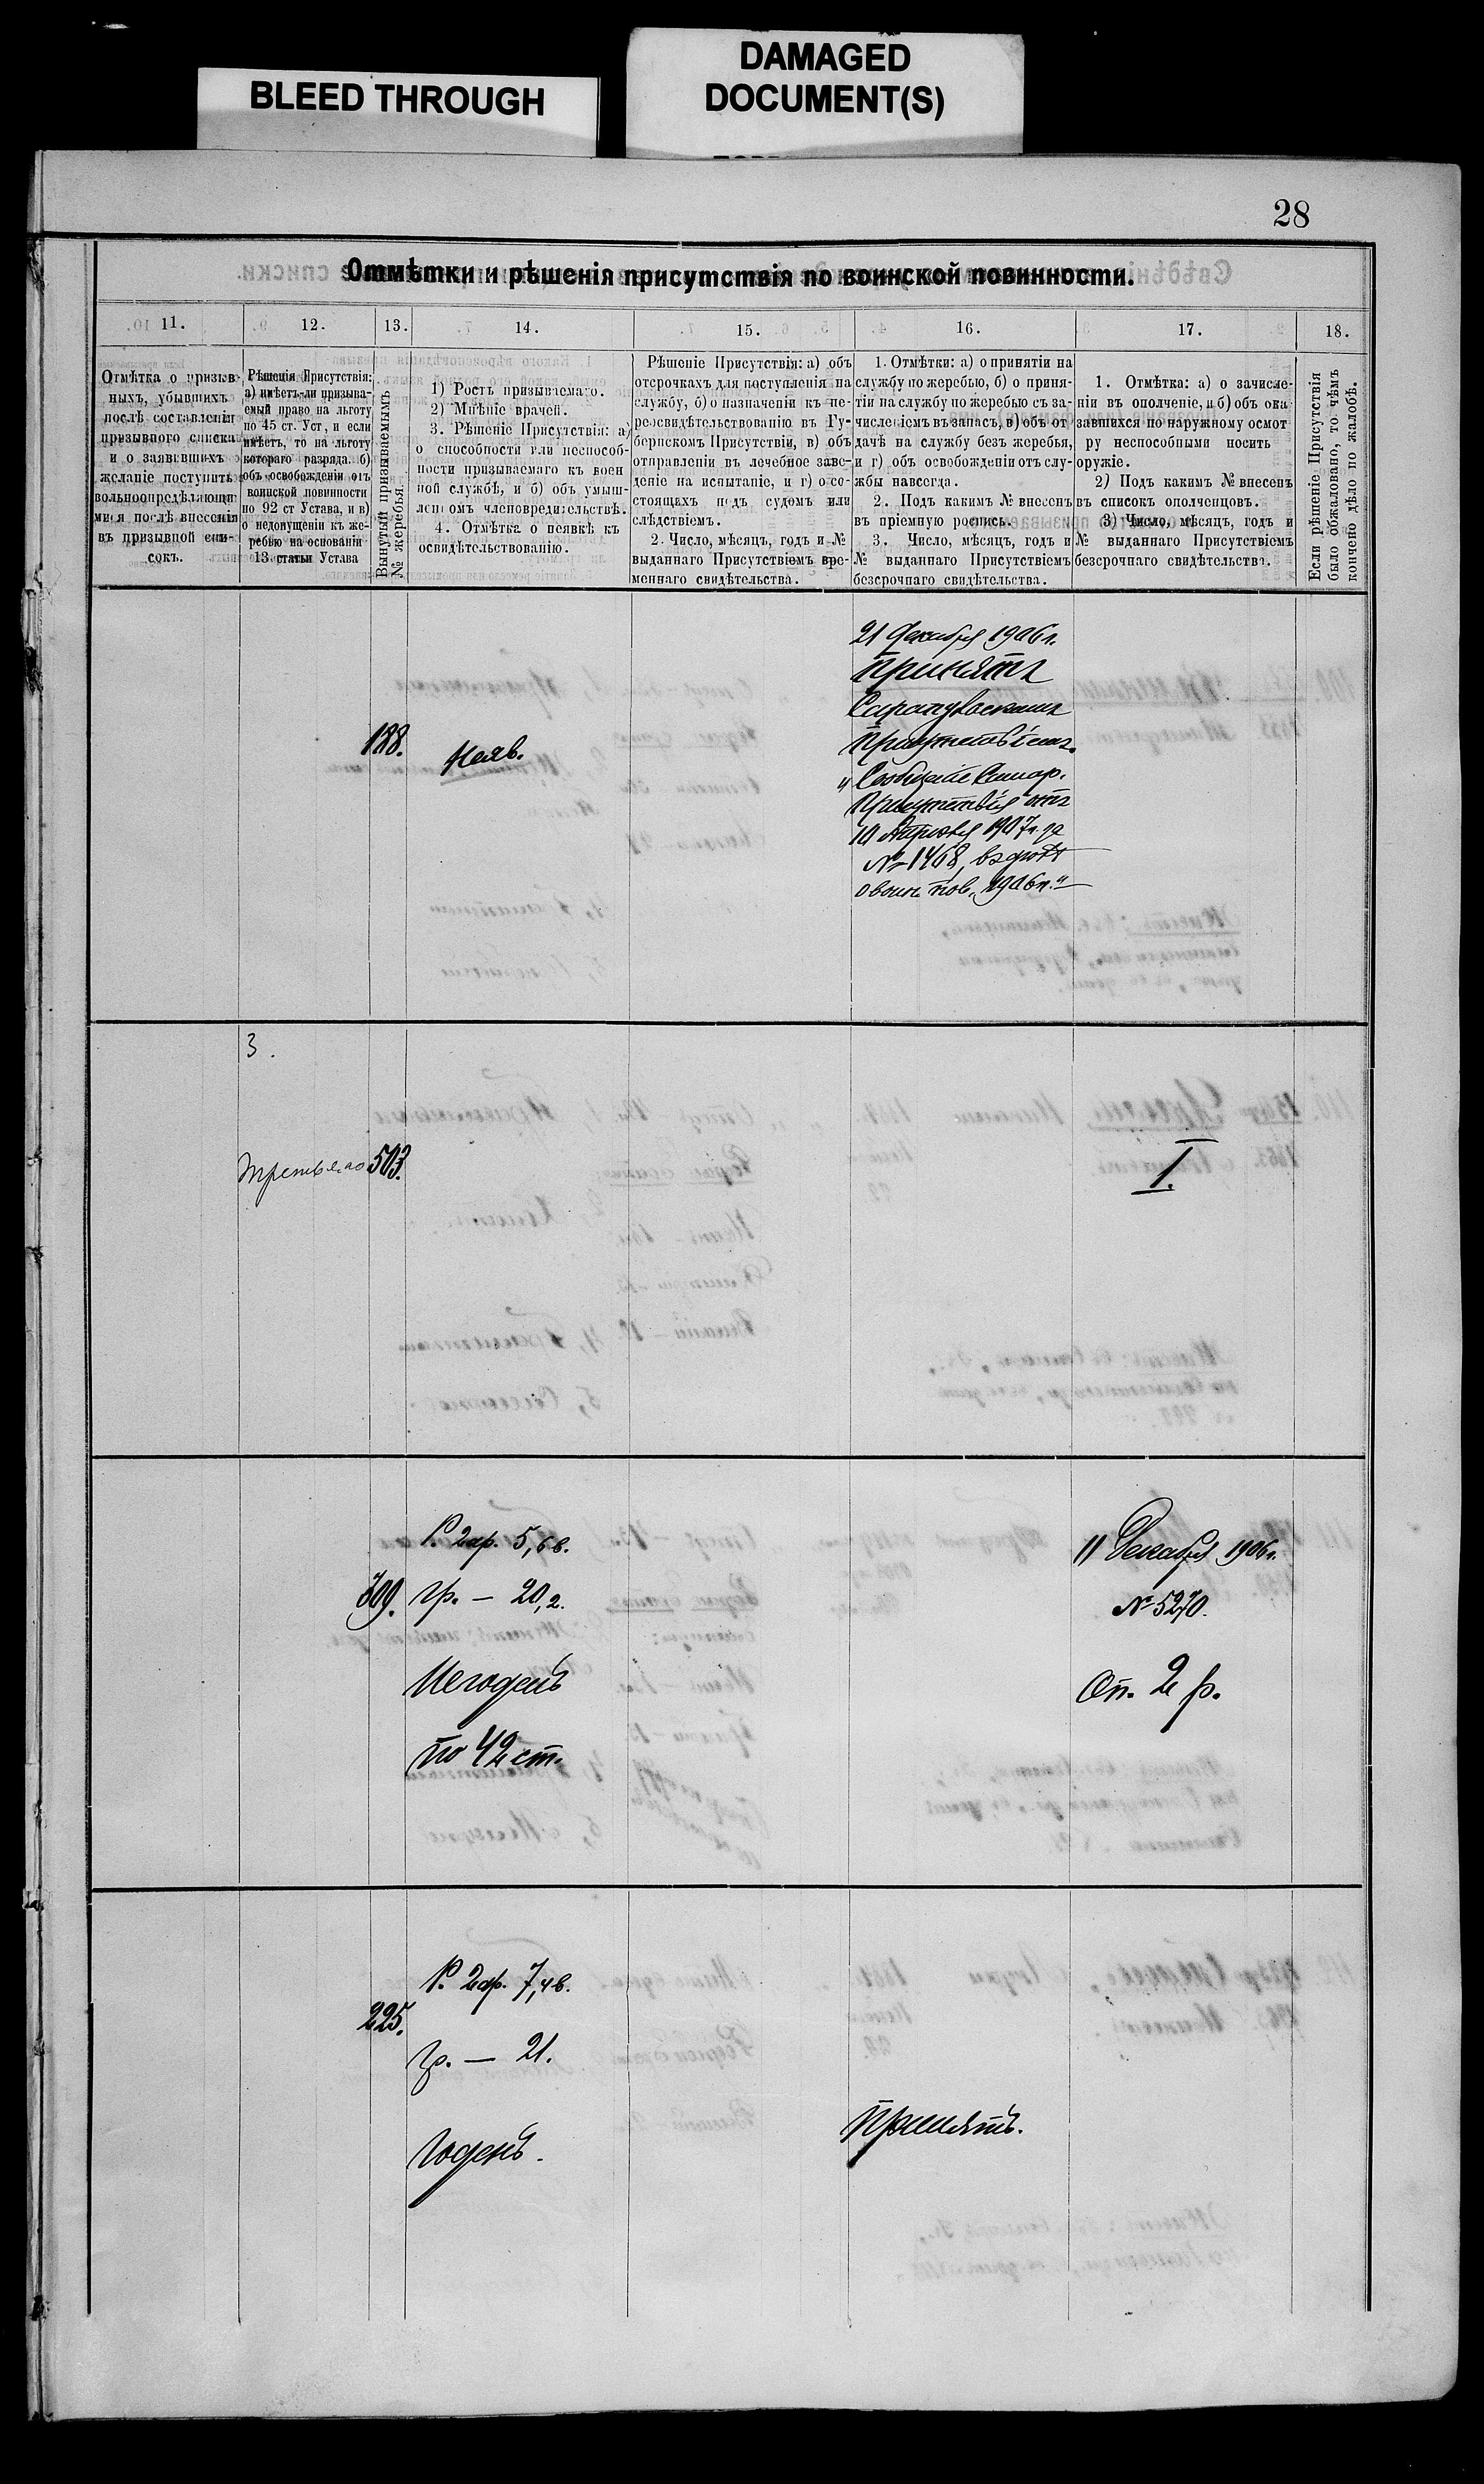 BLEED THROUGH
DAMAGED
DOCUMENT(S)
28
Отмѣтки и рѣшенія присутствія по воинской повинности.
11.
12.
13.
14.
15.
16.
17.
18.
Отмѣтка о призыв-
ныхъ, убывшихъ
послѣ составленія
призывного списка
и о заявившихъ
желаніе поступить
вольноопредѣляющи-
мися послѣ внесенія
въ призывной спи-
сокъ.
Рѣшенія Присутствія:
а) имѣетъ-ли призыва-
емый право на льготу
по 45 ст. Уст, и если
имѣетъ, то на льготу
котораго разряда. б)
объ освобожденіи отъ
воинской повинности
по 92 ст Устава, и в)
о недопущеніи къ же-
ребью на основаніи
13 статьи Устава
Вынутый призываемымъ
№ жеребья.
1) Ростъ призываемаго.
2) Мнѣніе врачей.
3. Рѣшеніе Присутствія: а)
о способности или неспособ-
ности призываемаго къ воен
ной службѣ, и б) объ умыш-
ленномъ членовредительствѣ.
4. Отмѣтка о неявкѣ къ
освидѣтельствованію.
Рѣшеніе Присутствія: а) объ
отсрочкахъ для поступленія на
службу, б) о назначеніи къ пе-
реосвидѣтельствованію въ Гу-
бернскомъ Присутствіи, в) объ
отправленіи въ лечебное заве-
деніе на испытаніе, и г) о со-
стоящихъ подъ судомъ или
слѣдствіемъ.
2. Число, мѣсяцъ, годъ и №
выданнаго Присутствіемъ вре-
меннаго свидѣтельства.
1. Отмѣтки: а) о принятіи на
службу по жеребью, б) о приня-
тіи на службу по жеребью съ за-
численіемъ въ запасъ, в) объ от
дачѣ на службу безъ жеребья,
и г) объ освобожденіи отъ слу-
жбы навсегда.
2. Подъ какимъ № внесенъ
въ пріемную роспись.
3. Число, мѣсяцъ, годъ и
№ выданнаго Присутствіемъ
безсрочнаго свидѣтельства.
1. Отмѣтка: а) о зачисле-
ніи въ ополченіе, и б) объ ока
завшихся по наружному осмот
ру неспособными носить
оружіе.
2) Подъ какимъ № внесенъ
въ списокъ ополченцовъ.
3) Число, мѣсяцъ, годъ и
№ выданнаго Присутствіемъ
безсрочнаго свидѣтельства.
Если рѣшеніе Присутствія
было обжаловано, то чѣмъ
кончено дѣло по жалобѣ.
188.
Неяв.
21 Декабря 1906 г.
Принятъ
Сарапульскимъ
Присутствіемъ.
Присутствія отъ
10 Апрѣля 1907 г. за
№ 1468,
о воин. пов. 1906 г."
3.
503.
I.
309.
Р. 2 ар. 5,6 в.
гр. — 20,2.
Негоденъ
по 42 ст.
11 Декабря 1906 г.
№ 5270.
Оп. 2 р.
225.
Р. 2 ар. 7,4 в.
гр. — 21.
Годенъ.
Принятъ.